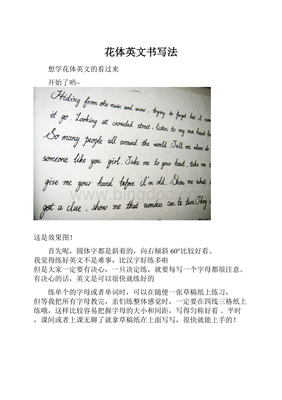 花体英文书写法
想学花体英文的看过来
开始了哟~
Hiding from the rain and snow, trying to forget but I won't
it go. Looking at crowded street, listen to my own heart b
So many people all around the world. Tell me where do
someone like you girl. Take me to your heart, take me t
give me your hand before I'm old. Show me what
got a clue, show me that wonders can be true. They
这是效果图！
首先呢，圆体字都是斜着的，向右倾斜 60°比较好看。
我觉得练好英文不是难事，比汉字好练多啦
但是大家一定要有决心，一旦决定练，就要每写一个字母都很注意。
有决心的话，英文是可以很快就练好的
练单个的字母或者单词时，可以在随便一张草稿纸上练习，
但等我把所有字母教完，亲们练整体感觉时，一定要在四线三格纸上
练哦，这样比较容易把握字母的大小和间距，写得匀称好看 。平时
，课间或者上课无聊了就拿草稿纸在上面写写，很快就能上手的！